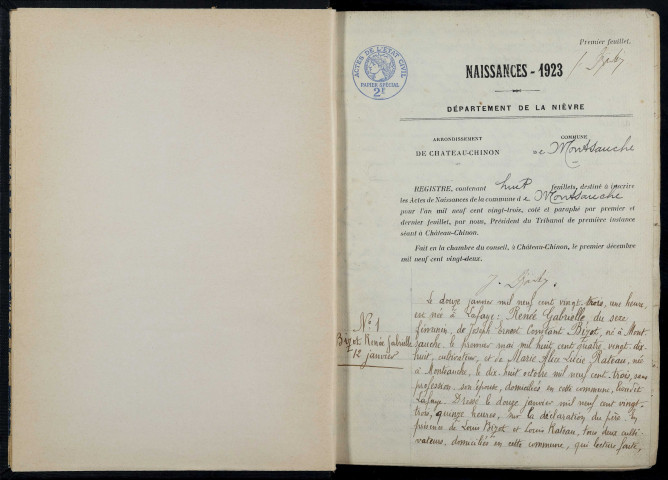 Premier feuillet.
ACTES DE L'ETAT CIVIL
PAPIER SPECIAL
2F
NAISSANCES - 1923
DÉPARTEMENT DE LA NIÈVRE
ARRONDISSEMENT
DE CHATEAU-CHINON
COMMUNE
de Montsauche
REGISTRE, contenant huit feuillets, destiné à inscrire
les Actes de Naissances de la commune de Montsauche
pour l'an mil neuf cent vingt-trois, coté et paraphé par premier et
dernier feuillet, par nous, Président du Tribunal de première instance
séant à Château-Chinon.
Fait en la chambre du conseil, à Château-Chinon, le premier décembre
mil neuf cent vingt-deux.
No 1
Bizot Renée Gabrielle
12 janvier
Le douze janvier mil neuf cent vingt-trois, une heure,
est née à Lafaye: Renée Gabrielle, du sexe
féminin, de Joseph Ernest Constant Bizot, né à Mont
sauche, le premier mai mil huit cent quatre vingt-dix
huit, cultivateur, et de Marie Alice Rateau, née
à Montsauche, le dix huit octobre mil neuf cent trois, sans
profession, son épouse, domiciliés en cette commune, lieu dit
Lafaye. Dressé le douze janvier mil neuf cent vingt-
trois, quinze heures, sur la déclaration du père. En
présence de Louis Bizot et Louis Rateau, tous deux culti-
vateurs, domiciliés en cette commune, qui lecture faite,